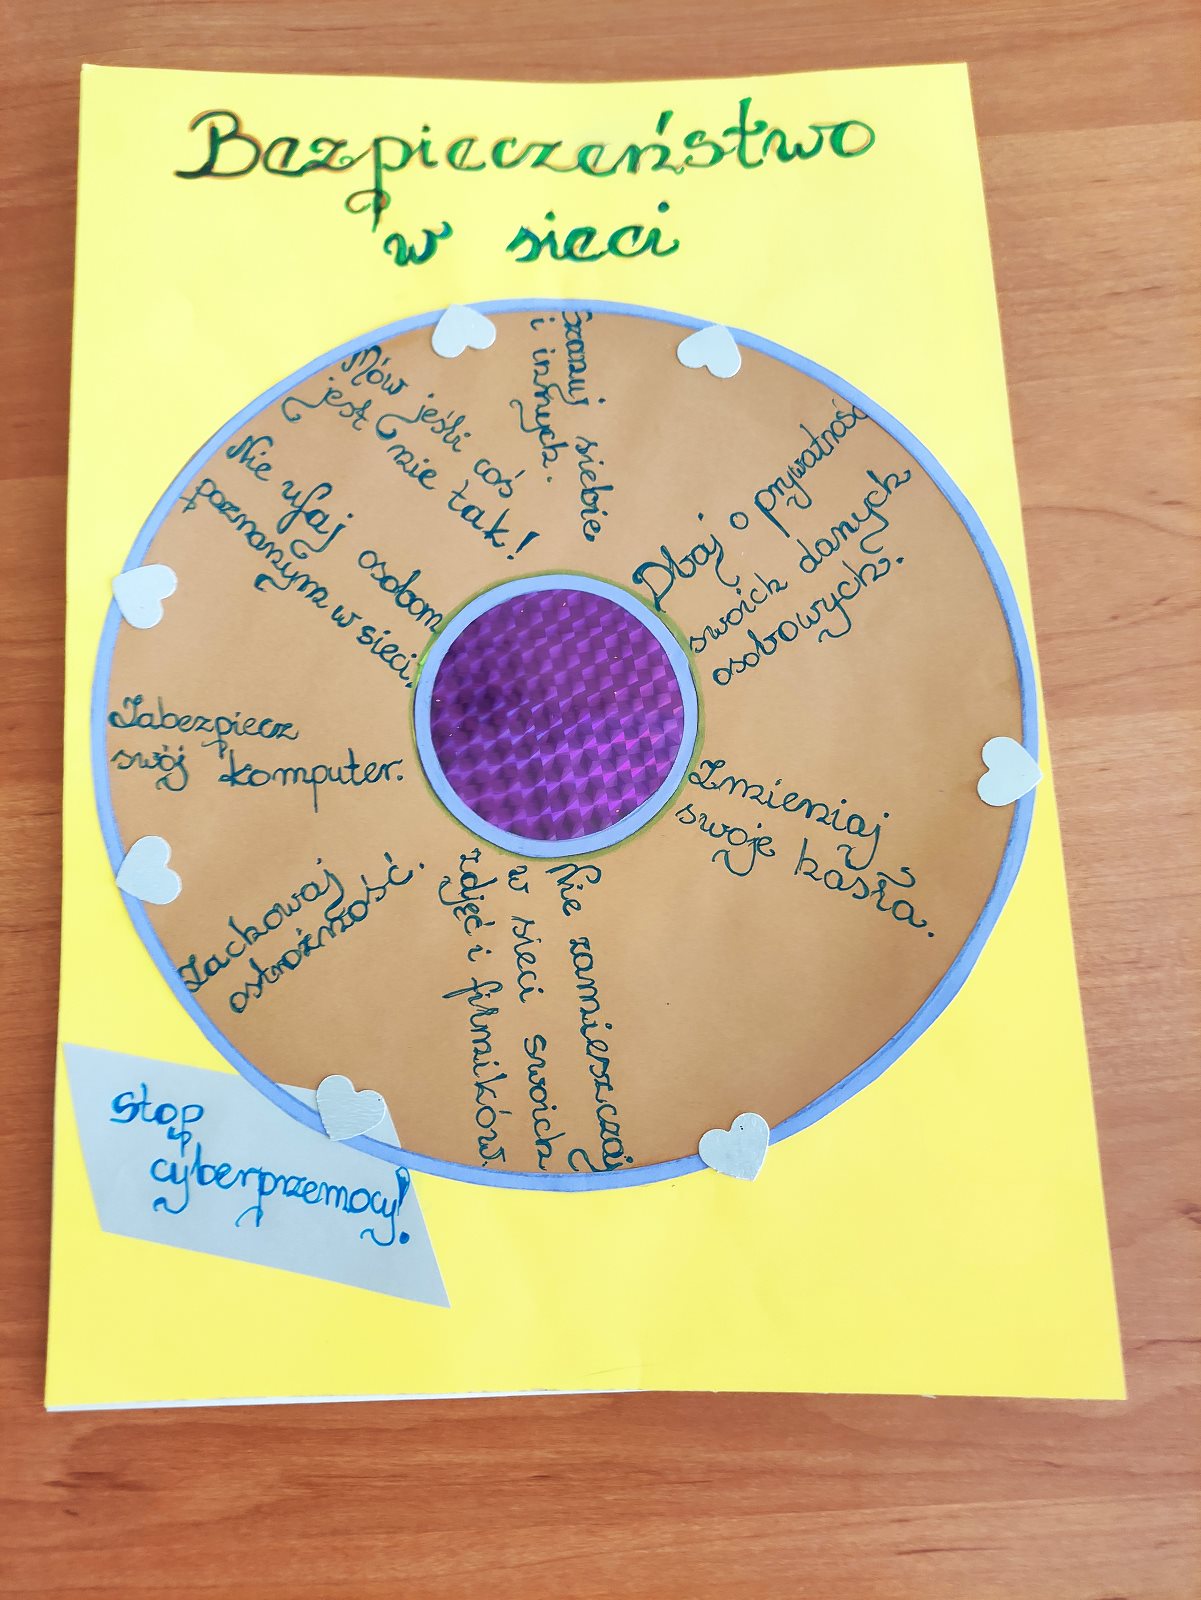 Bezpieczeństwo
w sieci
Szanuj siebie
i innych.
Dbaj o prywatność
swoich danych
osobowych.
Zmieniaj
swoje hasła.
Nie zamieszczaj
w sieci swoich
zdjęć i filmików.
Zachowaj
ostrożność.
Zabezpiecz
swój komputer.
Nie ufaj osobom
poznanym w sieci.
Mów jeśli coś
jest nie tak!
Stop
cyberprzemocy!